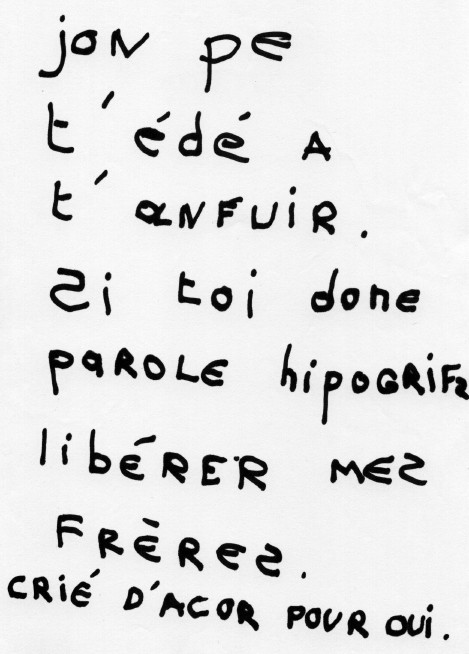 jon pe
t'édé A
t'anFUiR.
Si toi done
paROLE hipoGRiFs
libÉRER MES
FRÈRES.
CRiÉ D'ACOR POUR OUi.